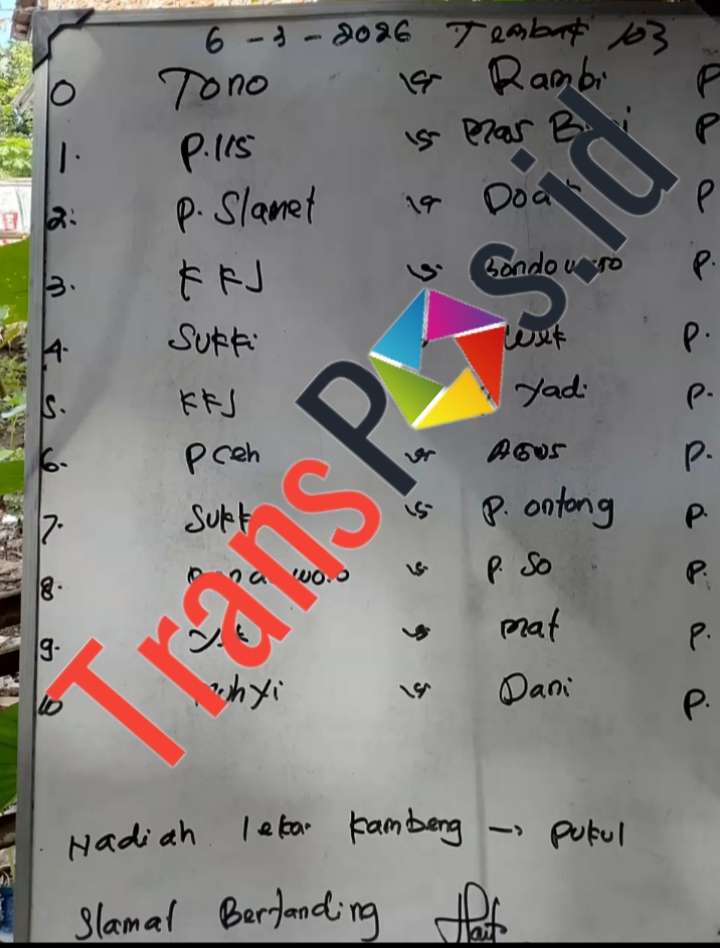 6 - 3 - 2026 Tembak 103
0 Tono vs Rambi P
1. P.IIS vs Mas P
2. P. Slamet vs P
3. KKJ vs Bondowoso P.
4. SUKKi P.
5. KKJ Yadi P.
6. P ceh vs AGUS P.
7. SUKK vs P. ontong P.
8. vs P. So P.
9. vs mat P.
10 vs Dani P.
Hadiah lekar kambeng → pukul
Slamat Bertanding
TransPos.id